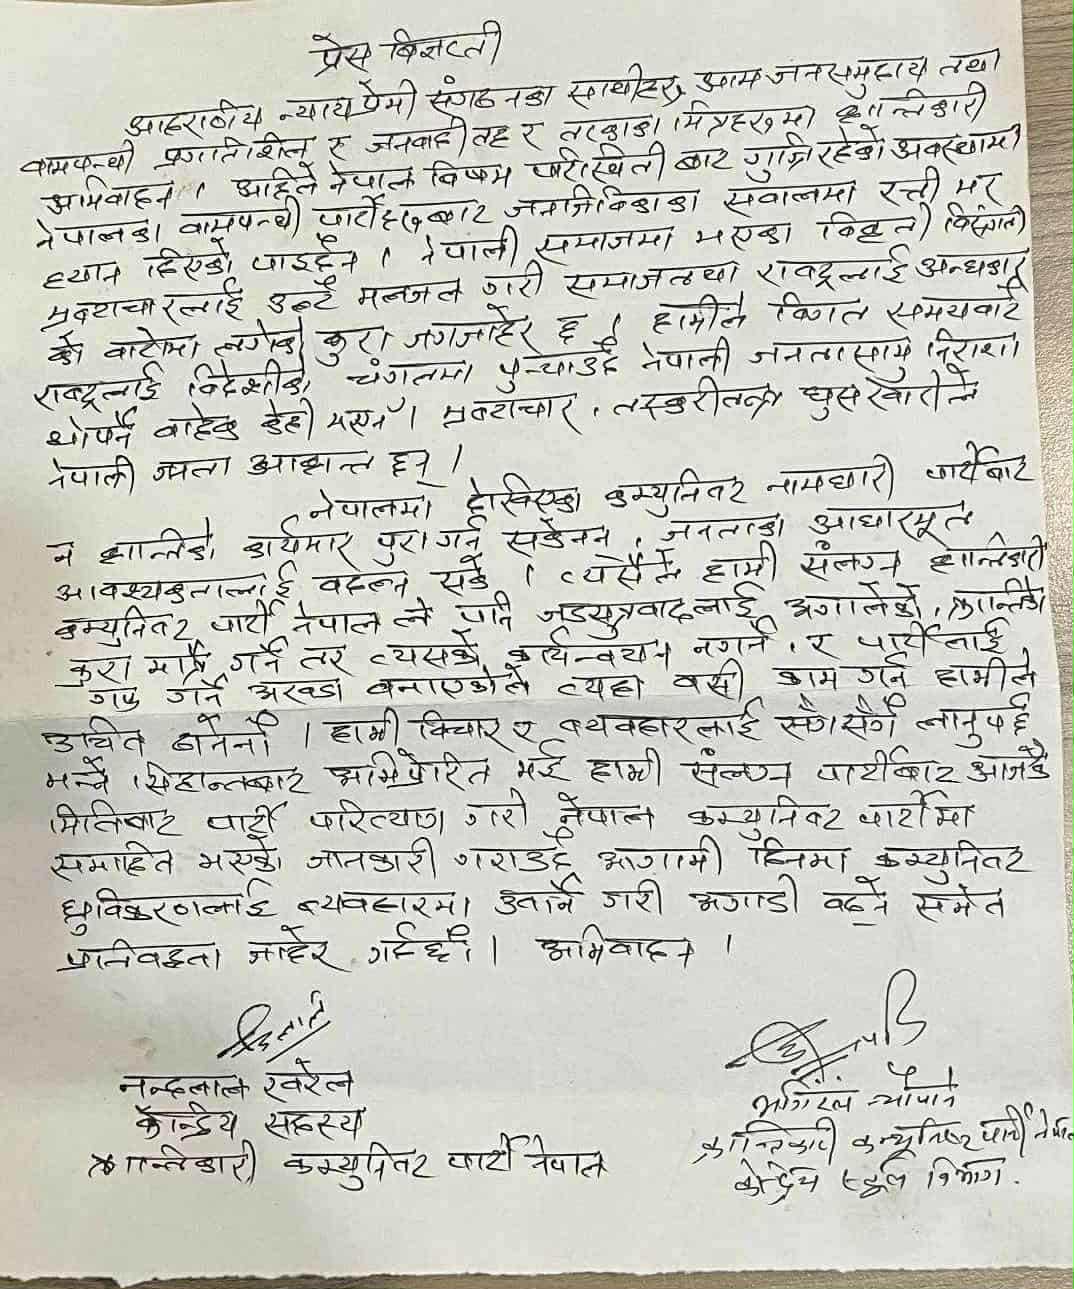 प्रेस विज्ञप्ती
आदरणीय न्यायप्रेमी संगठनका साथीहरु, आम जनसमुदाय तथा
वामपन्थी प्रगतिशिल र जनवादी तह र तप्काका मित्रहरुमा क्रान्तिकारी
अभिवादन । अहिले नेपाल विषम परिस्थिती बाट गुज्रिरहेको अवस्थामा
नेपालका वामपन्थी पार्टीहरुबाट जनजिविकाका सवालमा रत्ती भर
ध्यान दिएको पाइदैन । नेपाली समाजमा भएका विकृती विसंगती
भ्रष्टाचारलाई उल्टै मलजल गरी समाज तथा राष्ट्रलाई अन्धकार
को बाटोमा लगेको कुरा जगजाहेर छ । हामीले विगत समयबाटै
राष्ट्रलाई विदेशीको चंगुलमा पुर्‍याउदै नेपाली जनतासामु निराशा
थोपर्ने बाहेक केही भएन । भ्रष्टाचार, तस्करीतन्त्र घुसखोरीले
नेपाली जनता आक्रान्त छन् ।
नेपालमा देखिएका कम्युनिष्ट नामधारी पार्टीबाट
न क्रान्तिको कार्यभार पुरा गर्न सकेनन, जनताका आधारभूत
आवश्यकतालाई बदल्न सके । त्यसैले हामी संलग्न क्रान्तिकारी
कम्युनिष्ट पार्टी नेपाल ले पनि जडसुत्रवादलाई अगालेको, क्रान्तिको
कुरा मात्रै गर्ने तर त्यसको कार्यन्वयन नगर्ने, र पार्टीलाई
गफ गर्ने अखडा बनाएकोले त्यहा बसी काम गर्न हामीले
उचित ठानेनौ । हामी विचार र व्यवहारलाई सँगसँगै लानुपर्छ
भन्ने सिद्दान्तबाट अभिप्रेरित भई हामी संलग्न पार्टीबाट आजकै
मितिबाट पार्टी परित्याग गरी नेपाल कम्युनिष्ट पार्टीमा
समाहित भएको जानकारी गराउदै आगामी दिनमा कम्युनिष्ट
ध्रुविकरणलाई व्यवहारमा उतार्ने गरी अगाडी बढ्ने समेत
प्रतिवद्दता जाहेर गर्दछौ । अभिवादन ।
नन्दलाल खरेल
केन्द्रिय सदस्य
क्रान्तिकारी कम्युनिष्ट पार्टी नेपाल
क्रान्तिकारी कम्युनिष्ट पार्टी नेपाल
केन्द्रिय स्कुल विभाग.